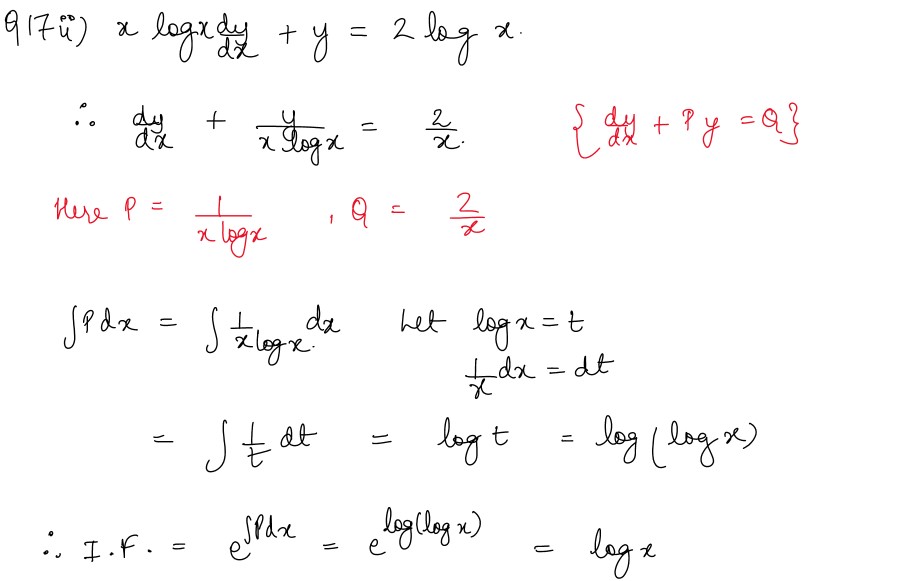 Q17 ii) x log x dy/dx + y = 2 log x.
∴ dy/dx + y/(x log x) = 2/x. { dy/dx + P y = Q }
Here P = 1/(x log x) , Q = 2/x
∫P dx = ∫ 1/(x log x) dx Let log x = t
1/x dx = dt
= ∫ 1/t dt = log t = log (log x)
∴ I.F. = e^(∫P dx) = e^(log(log x)) = log x